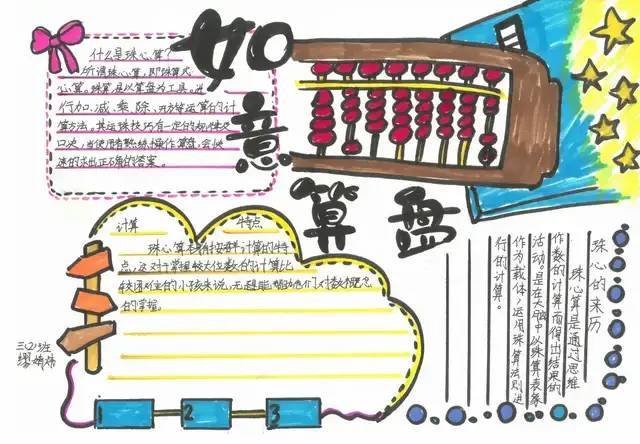 如意算盘
什么是珠心算?
所谓珠心算,即珠算式
心算。珠算是以算盘为工具。进
行加、减、乘、除、方等运算的计
算方法。其运珠技巧有一定的规律及
口决,当使用者熟练操作算盘,会快
速的求出正确的答案。
计算 特点
珠心算具有按群计算的特
点,这对于掌握较大位数的计算比
较困难的小孩来说,无疑能帮助他们对数概念
的掌握。
三(2)班
1 2 3
珠心的来历
珠心算是通过思维
作数的计算而得出结果的
活动。是在大脑中以珠算表象
作为载体,运用珠算法则进
行的计算。